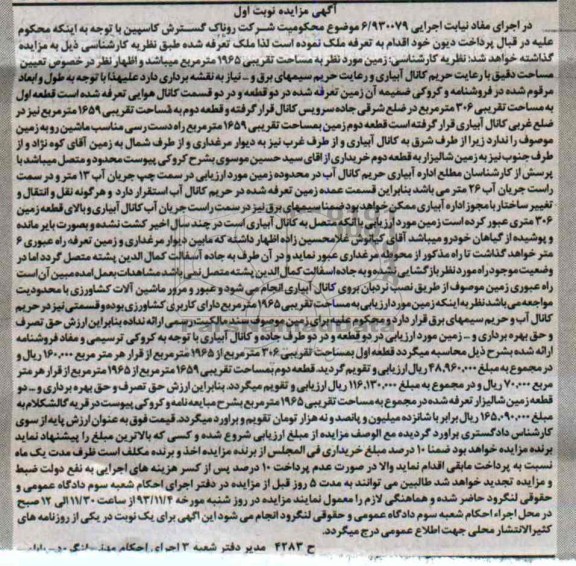 آگهی مزایده نوبت اول
در اجرای مفاد نیابت اجرایی ۶/۹۳۰۰۷۹ موضوع محکومیت شرکت روناک گسترش کاسپین با توجه به اینکه محکوم
علیه در قبال پرداخت دیون خود اقدام به تعرفه ملک نموده است لذا ملک تعرفه شده طبق نظریه کارشناسی ذیل به مزایده
گذاشته خواهد شد: نظریه کارشناسی: زمین مورد نظر به مساحت تقریبی ۱۹۶۵ مترمربع میباشد و اظهار نظر در خصوص تعیین
مساحت دقیق با رعایت حریم کانال آبیاری و رعایت حریم سیمهای برق و ... نیاز به نقشه برداری دارد علیهذا با توجه به طول و ابعاد
مرقوم شده در فروشنامه و کروکی ضمیمه آن زمین تعرفه شده در دو قطعه و در دو قسمت کانال هوایی تعرفه شده است قطعه اول
به مساحت تقریبی ۳۰۶ مترمربع در ضلع شرقی جاده سرویس کانال قرار گرفته و قطعه دوم به مساحت تقریبی ۱۶۵۹ مترمربع نیز در
ضلع غربی کانال آبیاری قرار گرفته است قطعه دوم زمین بمساحت تقریبی ۱۶۵۹ مترمربع راه دست رسی مناسب ماشین رو به زمین
موصوف را ندارد زیرا از طرف شرق به کانال آبیاری و از طرف غرب نیز به دیوار مرغداری و از طرف شمال به زمین آقای کوه نژاد و از
طرف جنوب نیز به زمین شالیزار به قطعه دوم خریداری از آقای سید حسین موسوی بشرح کروکی پیوست محدود و متصل میباشد با
پرسش از کارشناسان مطلع اداره آبیاری حریم کانال آب در محدوده زمین مورد ارزیابی در سمت چپ جریان آب ۱۳ متر و در سمت
راست جریان آب ۲۶ متر می باشد بنابراین قسمت عمده زمین تعرفه شده در حریم کانال آب استقرار دارد و هرگونه نقل و انتقال و
تغییر ساختار با مجوز اداره آبیاری ممکن خواهد بود ضمنا سیمهای برق نیز در سمت راست جریان آب کانال آبیاری و بالای قطعه زمین
۳۰۶ متری عبور کرده است زمین مورد ارزیابی بالنکه متصل به کانال آبیاری است در چند سال اخیر کشت نشده و بصورت بایر مانده
و پوشیده از گیاهان خودرو میباشد آقای کیانوش غلامحسین زاده اظهار داشته که مابین دیوار مرغداری و زمین تعرفه راه عبوری ۶
متر خواهد گذاشت تا راه مذکور از محوطه مرغداری عبور نماید و در آن طرف به جاده آسفالت کمال الدین پشته متصل گردد اما در
وضعیت موجود راه مورد نظر بازگشایی نشده و به جاده اسفالت کمال الدین پشته متصل نمی باشد مشاهدات بعمل امده مبین آن است
راه عبوری زمین موصوف از طریق نصب نردبان بروی کانال آبیاری انجام می شود و عبور و مرور ماشین آلات کشاورزی با محدودیت
مواجه می باشد نظر به اینکه زمین مورد ارزیابی به مساحت تقریبی ۱۹۶۵ مترمربع دارای کاربری کشاورزی بوده و قسمتی نیز در حریم
کانال آب و حریم سیمهای برق قرار دارد و محکوم علیه برای زمین موصوف سند مالکیت رسمی ارائه نداده بنابراین ارزش حق تصرف
و حق بهره برداری و ... زمین مورد ارزیابی در دو قطعه و در دو طرف جاده و کانال آبیاری با توجه به کروکی ترسیمی و مفاد فروشنامه
ارائه شده بشرح ذیل محاسبه میگردد قطعه اول بمساحت تقریبی ۳۰۶ مترمربع از ۱۹۶۵ مترمربع از قرار هر متر مربع ۱۶۰,۰۰۰ ریال و
در مجموع به مبلغ ۴۸,۹۶۰,۰۰۰ ریال ارزیابی و تقویم گردید. قطعه دوم بمساحت تقریبی ۱۶۵۹ مترمربع از ۱۹۶۵ مترمربع از قرار هر متر
مربع ۷۰,۰۰۰ ریال و در مجموع به مبلغ ۱۱۶,۱۳۰,۰۰۰ ریال ارزیابی و تقویم میگردد. بنابراین ارزش حق تصرف و حق بهره برداری و ... دو
قطعه زمین شالیزار تعرفه شده در مجموع به مساحت تقریبی ۱۹۶۵ مترمربع بشرح مبایعه نامه و کروکی پیوست در قریه گالشکلام به
مبلغ ۱۶۵,۰۹۰,۰۰۰ ریال برابر با شانزده میلیون و پانصد و نه هزار تومان تقویم و براورد میگردد. قیمت فوق به عنوان ارزش پایه از سوی
کارشناس دادگستری براورد گردیده مع الوصف مزایده از مبلغ ارزیابی شروع شده و کسی که بالاترین مبلغ را پیشنهاد نماید
برنده مزایده خواهد بود ضمنا ۱۰ درصد مبلغ خریداری فی المجلس از برنده مزایده اخذ و برنده مکلف است ظرف مدت یک ماه
نسبت به پرداخت مابقی اقدام نماید والا در صورت عدم پرداخت ۱۰ درصد پس از کسر هزینه های اجرایی به نفع دولت ضبط
و مزایده تجدید خواهد شد طالبین می توانند به مدت ۵ روز قبل از مزایده در دفتر اجرای احکام شعبه سوم دادگاه عمومی و
حقوقی لنگرود حاضر شده و هماهنگی لازم را معمول نمایند مزایده در روز شنبه مورخه ۹۳/۱۱/۴ از ساعت ۱۱/۳۰ الی ۱۲ صبح
در محل اجراء احکام شعبه سوم دادگاه عمومی و حقوقی لنگرود انجام می شود این اگهی برای یک نوبت در یکی از روزنامه های
کثیرالانتشار محلی جهت اطلاع عمومی درج میگردد.
ح ۴۲۸۳ مدیر دفتر شعبه ۳ اجرای احکام